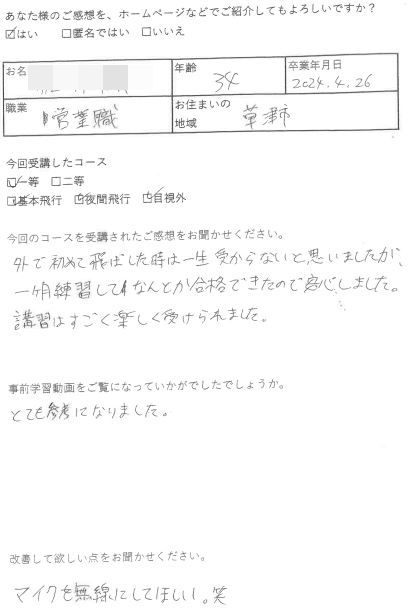 あなた様のご感想を、ホームページなどでご紹介してもよろしいですか？
☑はい　□匿名ではい　□いいえ
お名前
年齢
34
卒業年月日
2024.4.26
職業
営業職
お住まいの地域
草津市
今回受講したコース
☑一等　□二等
☑基本飛行　☑夜間飛行　☑目視外
今回のコースを受講されたご感想をお聞かせください。
外で初めて飛ばした時は一生受からないと思いましたが、
一ヶ月練習してなんとか合格できたので安心しました。
講習はすごく楽しく受けられました。
事前学習動画をご覧になっていかがでしたでしょうか。
とても参考になりました。
改善して欲しい点をお聞かせください。
マイクを無線にしてほしい。笑